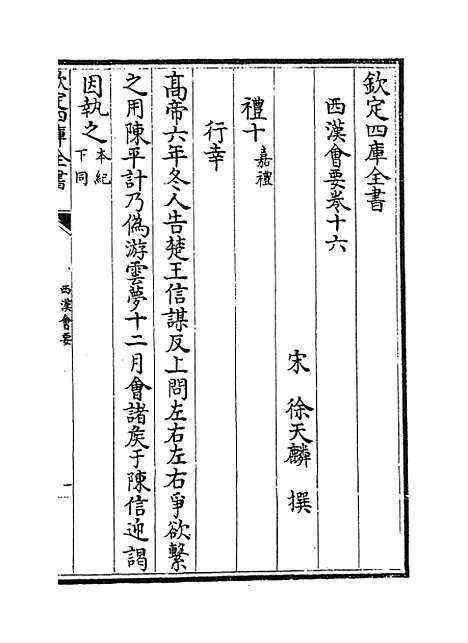 欽定四庫全書
西漢會要卷十六
宋 徐天麟 撰
禮十 嘉禮
行幸
高帝六年冬人告楚王信謀反上問左右左右爭欲繫
之用陳平計乃偽游雲夢十二月會諸侯于陳信迎謁
因執之 本紀下同
欽定四庫全書
西漢會要
一